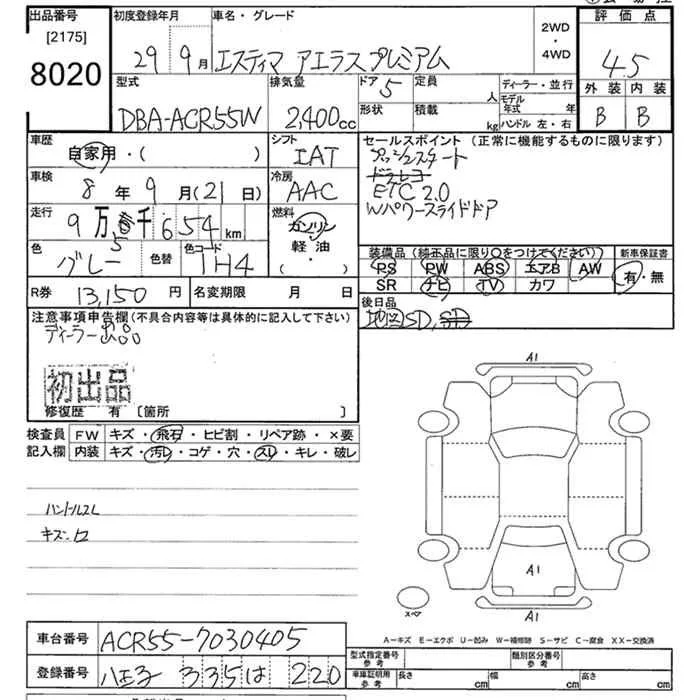 出品番号 [2175] 8020
初度登録年月 29 9月
車名・グレード エスティマ アエラスプレミアム
2WD・4WD
評価点 4.5
外装 内装
B B
型式 DBA-ACR55W
排気量 2,400cc
ドア 5
形状
定員 人
積載 kg
ディーラー・並行
モデル年式 年
ハンドル 左・右
車歴 自家用・( )
シフト IAT
セールスポイント (正常に機能するものに限ります)
プッシュスタート
ドラレコ
ETC 2.0
Wパワースライドドア
車検 8年 9月(21日)
冷房 AAC
走行 9万 5千 654 km
燃料 ガソリン 軽油・( ・ )
色 グレー 色替 色コード 1H4
装備品 (純正品に限り○をつけてください) 新車保証書
PS PW ABS エアB AW 有・無
SR ナビ TV カワ
R券 13,150円 名変期限 月 日
後日品
地図SD, SD
注意事項申告欄(不具合内容等は具体的に記入して下さい)
ディーラー出品
初出品
修復歴 有 [箇所 ]
検査員記入欄
FW キズ・飛石・ヒビ割・リペア跡・×要
内装 キズ・汚レ・コゲ・穴・スレ・キレ・破レ
ハンドルスレ
A1
A1
A1
スペア
A-キズ E-エクボ U-凹み W-補修跡 S-サビ C-腐食 XX-交換済
車台番号 ACR55-7030405
登録番号 八王子 335 は 220
型式指定番号 参考 類別区分番号 参考
車庫証明用 参考 長さ cm 幅 cm 高さ cm